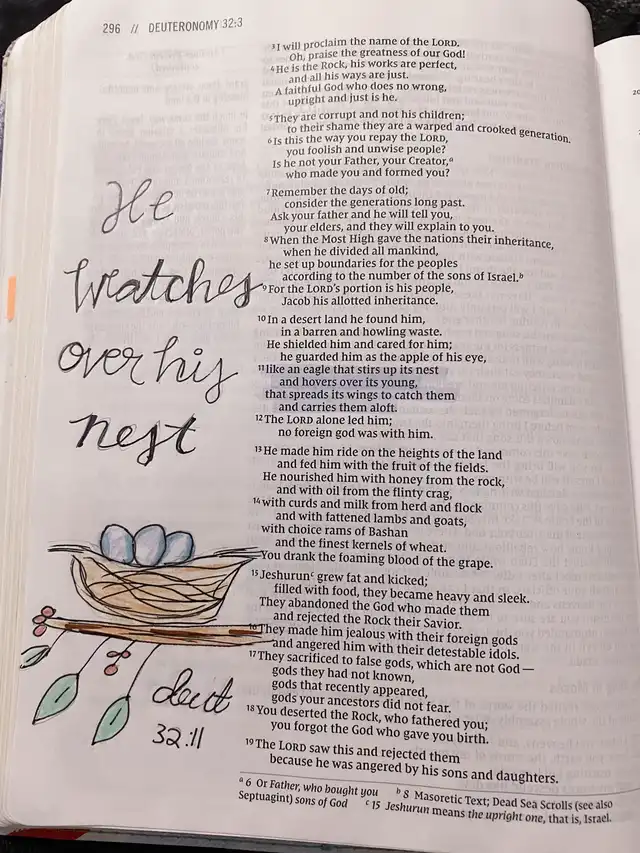 296 // DEUTERONOMY 32:3
He
Watches
over his
nest
deut
32:11
3 I will proclaim the name of the LORD.
Oh, praise the greatness of our God!
4 He is the Rock, his works are perfect,
and all his ways are just.
A faithful God who does no wrong,
upright and just is he.
5 They are corrupt and not his children;
to their shame they are a warped and crooked generation.
6 Is this the way you repay the LORD,
you foolish and unwise people?
Is he not your Father, your Creator,a
who made you and formed you?
7 Remember the days of old;
consider the generations long past.
Ask your father and he will tell you,
your elders, and they will explain to you.
8 When the Most High gave the nations their inheritance,
when he divided all mankind,
he set up boundaries for the peoples
according to the number of the sons of Israel.b
9 For the LORD's portion is his people,
Jacob his allotted inheritance.
10 In a desert land he found him,
in a barren and howling waste.
He shielded him and cared for him;
he guarded him as the apple of his eye,
11 like an eagle that stirs up its nest
and hovers over its young,
that spreads its wings to catch them
and carries them aloft.
12 The LORD alone led him;
no foreign god was with him.
13 He made him ride on the heights of the land
and fed him with the fruit of the fields.
He nourished him with honey from the rock,
and with oil from the flinty crag,
14 with curds and milk from herd and flock
and with fattened lambs and goats,
with choice rams of Bashan
and the finest kernels of wheat.
You drank the foaming blood of the grape.
15 Jeshurunc grew fat and kicked;
filled with food, they became heavy and sleek.
They abandoned the God who made them
and rejected the Rock their Savior.
16 They made him jealous with their foreign gods
and angered him with their detestable idols.
17 They sacrificed to false gods, which are not God—
gods they had not known,
gods that recently appeared,
gods your ancestors did not fear.
18 You deserted the Rock, who fathered you;
you forgot the God who gave you birth.
19 The LORD saw this and rejected them
because he was angered by his sons and daughters.
a 6 Or Father, who bought you b 8 Masoretic Text; Dead Sea Scrolls (see also
Septuagint) sons of God c 15 Jeshurun means the upright one, that is, Israel.